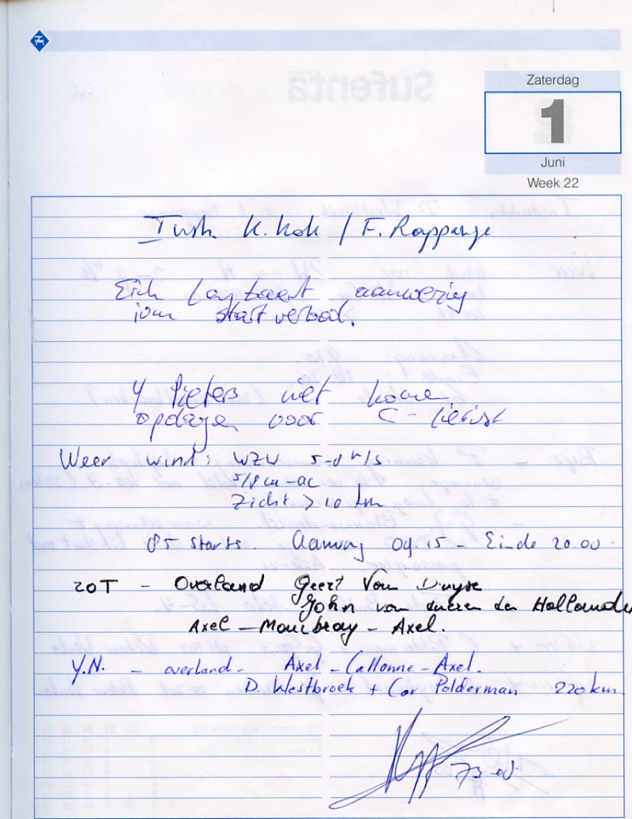 Zaterdag
1
Juni
Week 22
Instr. K. Kok / F. Rappange
Erik aanwezig
i.v.m. startverbod.
Y Pieters niet komen
opdagen voor C-
Weer wind: WZW 5-8 m/s
5/8 cu-ac
Zicht > 10 km
85 starts. Aanvang 09.15 - Einde 20.00
ZOT - Overland Geert Van Duyse
John van den Hollander
Axel - - Axel.
Y.N. - overland. Axel - Callonne - Axel.
D. Westbroek + Cor Polderman 220 km